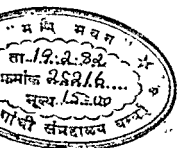 " मणि भवन "
ता. 19.2.82
क्रमांक 25216....
मूल्य. 15=00
गांधी संग्रहालय बम्बई